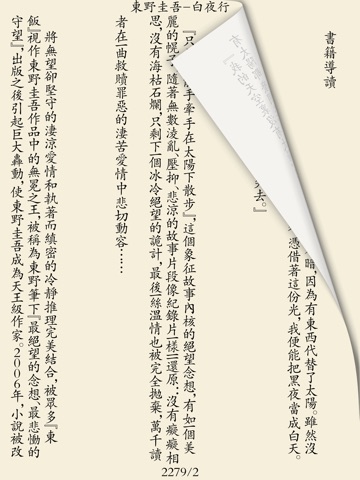 東野圭吾-白夜行
書籍導讀
暗，因為有東西代替了太陽。雖然沒
憑借著這份光，我便能把黑夜當成白天。
去。』
『只
手牽手在太陽下散步』，這個象征故事內核的絕望念想，有如一個美
麗的幌
隨著無數凌亂、壓抑、悲涼的故事片段像紀錄片一樣一一還原：沒有癡癡相
思，沒有海枯石爛，只剩下一個冰冷絕望的詭計，最後一絲溫情也被完全拋棄，萬千讀
者在一曲救贖罪惡的淒苦愛情中悲切動容……
將無望卻堅守的淒涼愛情和執著而縝密的冷靜推理完美結合，被眾多『東
飯』視作東野圭吾作品中的無冕之王，被稱為東野筆下『最絕望的念想、最悲慟的
守望』，出版之後引起巨大轟動，使東野圭吾成為天王級作家。2006年，小說被改
2279/2